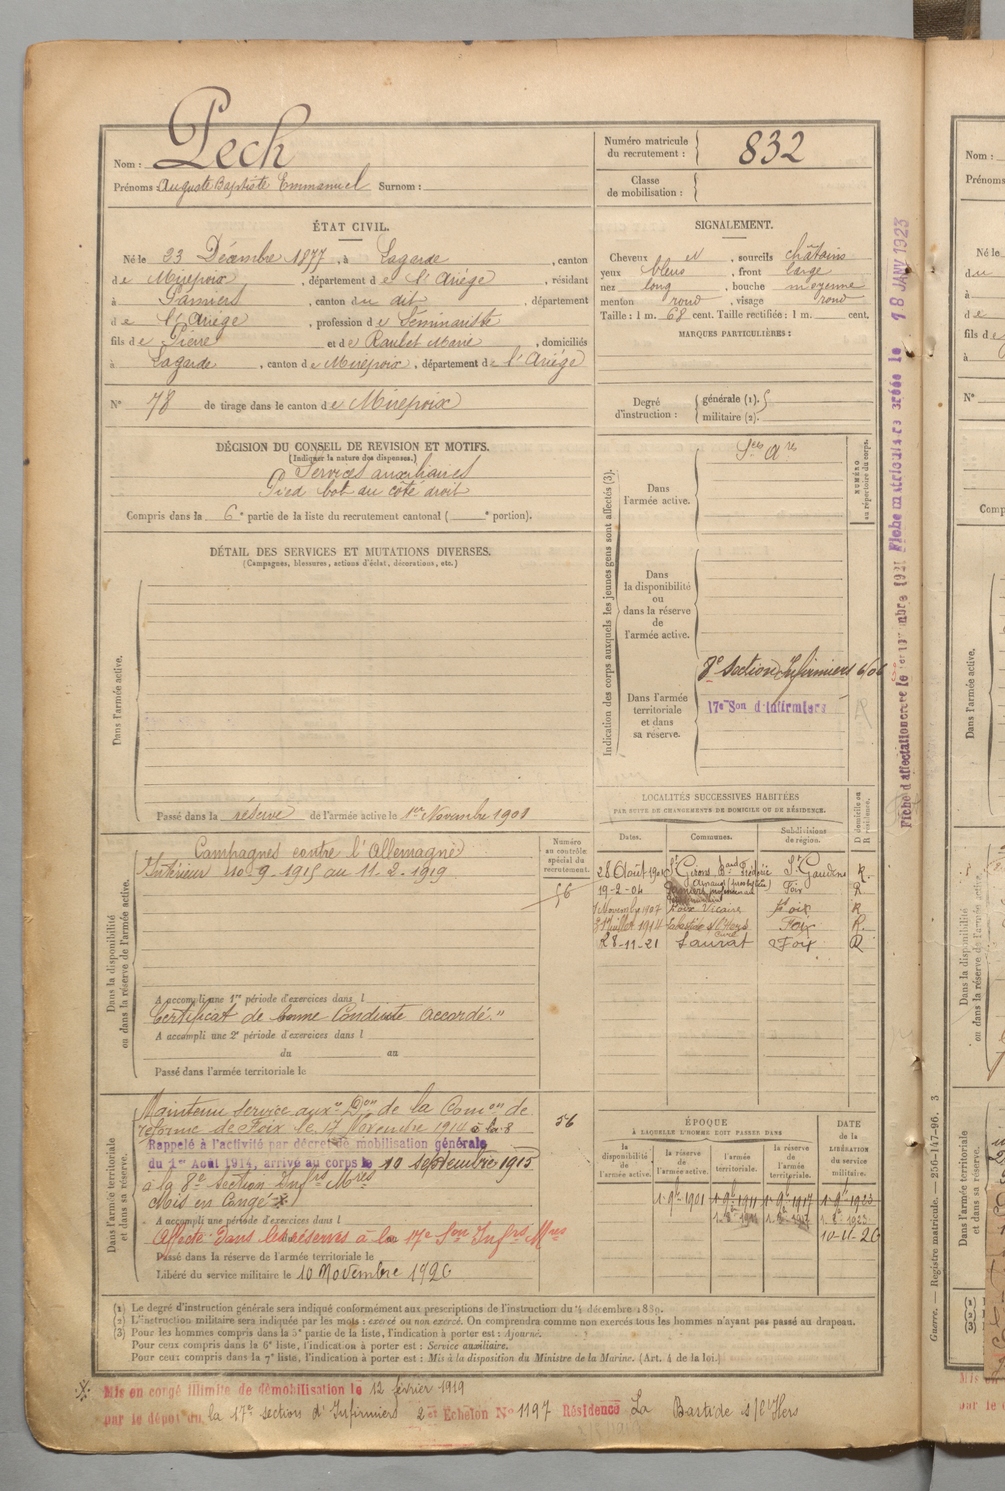 Nom : Pech
Prénoms : Auguste Baptiste Emmanuel Surnom :
Numéro matricule du recrutement : 832
Classe de mobilisation :
ÉTAT CIVIL.
Né le 23 Décembre 1877, à Lagarde, canton
de Mirepoix, département de l'Ariége, résidant
à Pamiers, canton du dit, département
de l'Ariège, profession de Séminariste
fils de Pierre et de Raulet Marie, domiciliés
à Lagarde, canton de Mirepoix, département de l'Ariége
N° 78 de tirage dans le canton de Mirepoix
SIGNALEMENT.
Cheveux et, sourcils châtains
yeux bleus, front large
nez long, bouche moyenne
menton rond, visage rond
Taille : 1 m. 68 cent. Taille rectifiée : 1 m. cent.
MARQUES PARTICULIÈRES :
Degré d'instruction : générale (1).
militaire (2).
DÉCISION DU CONSEIL DE REVISION ET MOTIFS.
(Indiquer la nature des dispenses.)
Services auxiliaires
Pied bot du côté droit
Compris dans la 6e partie de la liste du recrutement cantonal ( e portion).
DÉTAIL DES SERVICES ET MUTATIONS DIVERSES.
(Campagnes, blessures, actions d'éclat, décorations, etc.)
Dans l'armée active.
Passé dans la réserve de l'armée active le 1er Novembre 1901
Indication des corps auxquels les jeunes gens sont affectés (3).
NUMÉRO au répertoire du corps.
Dans l'armée active.
Ses Are
Dans la disponibilité ou dans la réserve de l'armée active.
Dans l'armée territoriale et dans sa réserve.
8e Section Infirmiers 6/06
17e Son d'Infirmiers
Fiche matriculaire créée le 18 JANV 1923
LOCALITÉS SUCCESSIVES HABITÉES
PAR SUITE DE CHANGEMENTS DE DOMICILE OU DE RÉSIDENCE.
Dates. Communes. Subdivisions de région. D domicile ou R résidence.
28 Août 1901 St Girons St Gaudens R.
19-2-04 Foix R
Novembre 1907 Foix Vicaire Foix R
Juillet 1914 Labastide s/l'Hers Foix R.
Curé
28-11-21 Saurat Foix R
Dans la disponibilité ou dans la réserve de l'armée active.
Numéro au contrôle spécial du recrutement.
56
Campagnes contre l'Allemagne
Intérieur 10-9-1915 au 11-2-1919
A accompli une 1re période d'exercices dans l
Certificat de bonne Conduite accordé."
A accompli une 2e période d'exercices dans l
du au
Passé dans l'armée territoriale le
Dans l'armée territoriale et dans sa réserve.
Maintenu Service auxre Don de la Comon de
réforme de Foix le 17 Novembre 1914
56
Rappelé à l'activité par décret de mobilisation générale
du 1er Août 1914, arrivé au corps le 10 Septembre 1915
à la 8e Section Infrs Mres
Mis en Congé
A accompli une période d'exercices dans l
Affecté dans les réserves à la 17e Son Infrs Mres
Passé dans la réserve de l'armée territoriale le
Libéré du service militaire le 10 Novembre 1926
ÉPOQUE
À LAQUELLE L'HOMME DOIT PASSER DANS
DATE de la LIBÉRATION du service militaire.
la disponibilité de l'armée active. la réserve de l'armée active. l'armée territoriale. la réserve de l'armée territoriale.
1-9bre 1901 1-9bre 1911 1-9bre 1917 1-9bre 1923
10-11-26
(1) Le degré d'instruction générale sera indiqué conformément aux prescriptions de l'instruction du 4 décembre 1889.
(2) L'instruction militaire sera indiquée par les mots : exercé ou non exercé. On comprendra comme non exercés tous les hommes n'ayant pas passé au drapeau.
(3) Pour les hommes compris dans la 5e partie de la liste, l'indication à porter est : Ajourné.
Pour ceux compris dans la 6e liste, l'indication à porter est : Service auxiliaire.
Pour ceux compris dans la 7e liste, l'indication à porter est : Mis à la disposition du Ministre de la Marine. (Art. 4 de la loi.)
Guerre. — Registre matricule. — 256-147-96. 3
Mis en congé illimité de démobilisation le 12 février 1919
par le dépôt du la 17e section d'Infirmiers 2e Echelon N° 1197 Résidence La Bastide s/l'Hers